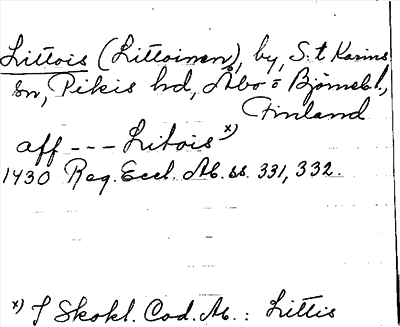 Littois (Littoinen), by, S:t Karins
sn, Pikis hd, Åbo o Björneb.l.,
Finland
aff --- Litois x)
1430 Reg. Eccl. Ab. ss. 331, 332.
x) I Skokl. Cod. Ab.: Littis